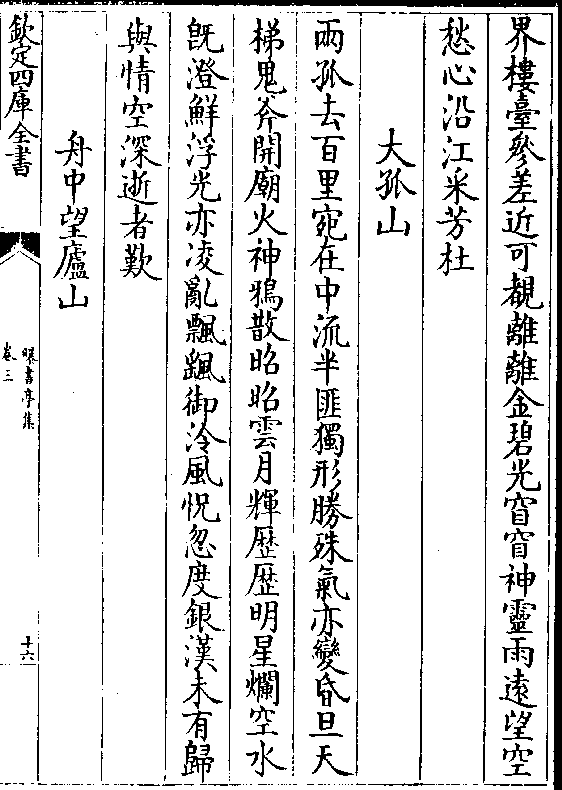 界樓臺參差近可覩離離金碧光窅窅神靈雨遠望空
愁心沿江采芳杜
大孤山
兩孤去百里宛在中流半匪獨形勝殊氣亦變昏旦天
梯鬼斧開廟火神鴉散昭昭雲月輝歷歷明星爛空水
旣澄鮮浮光亦凌亂飄颻御泠風怳忽度銀漢未有歸
與情空深逝者歎
舟中望廬山
欽定四庫全書
曝書亭集
卷三
十六